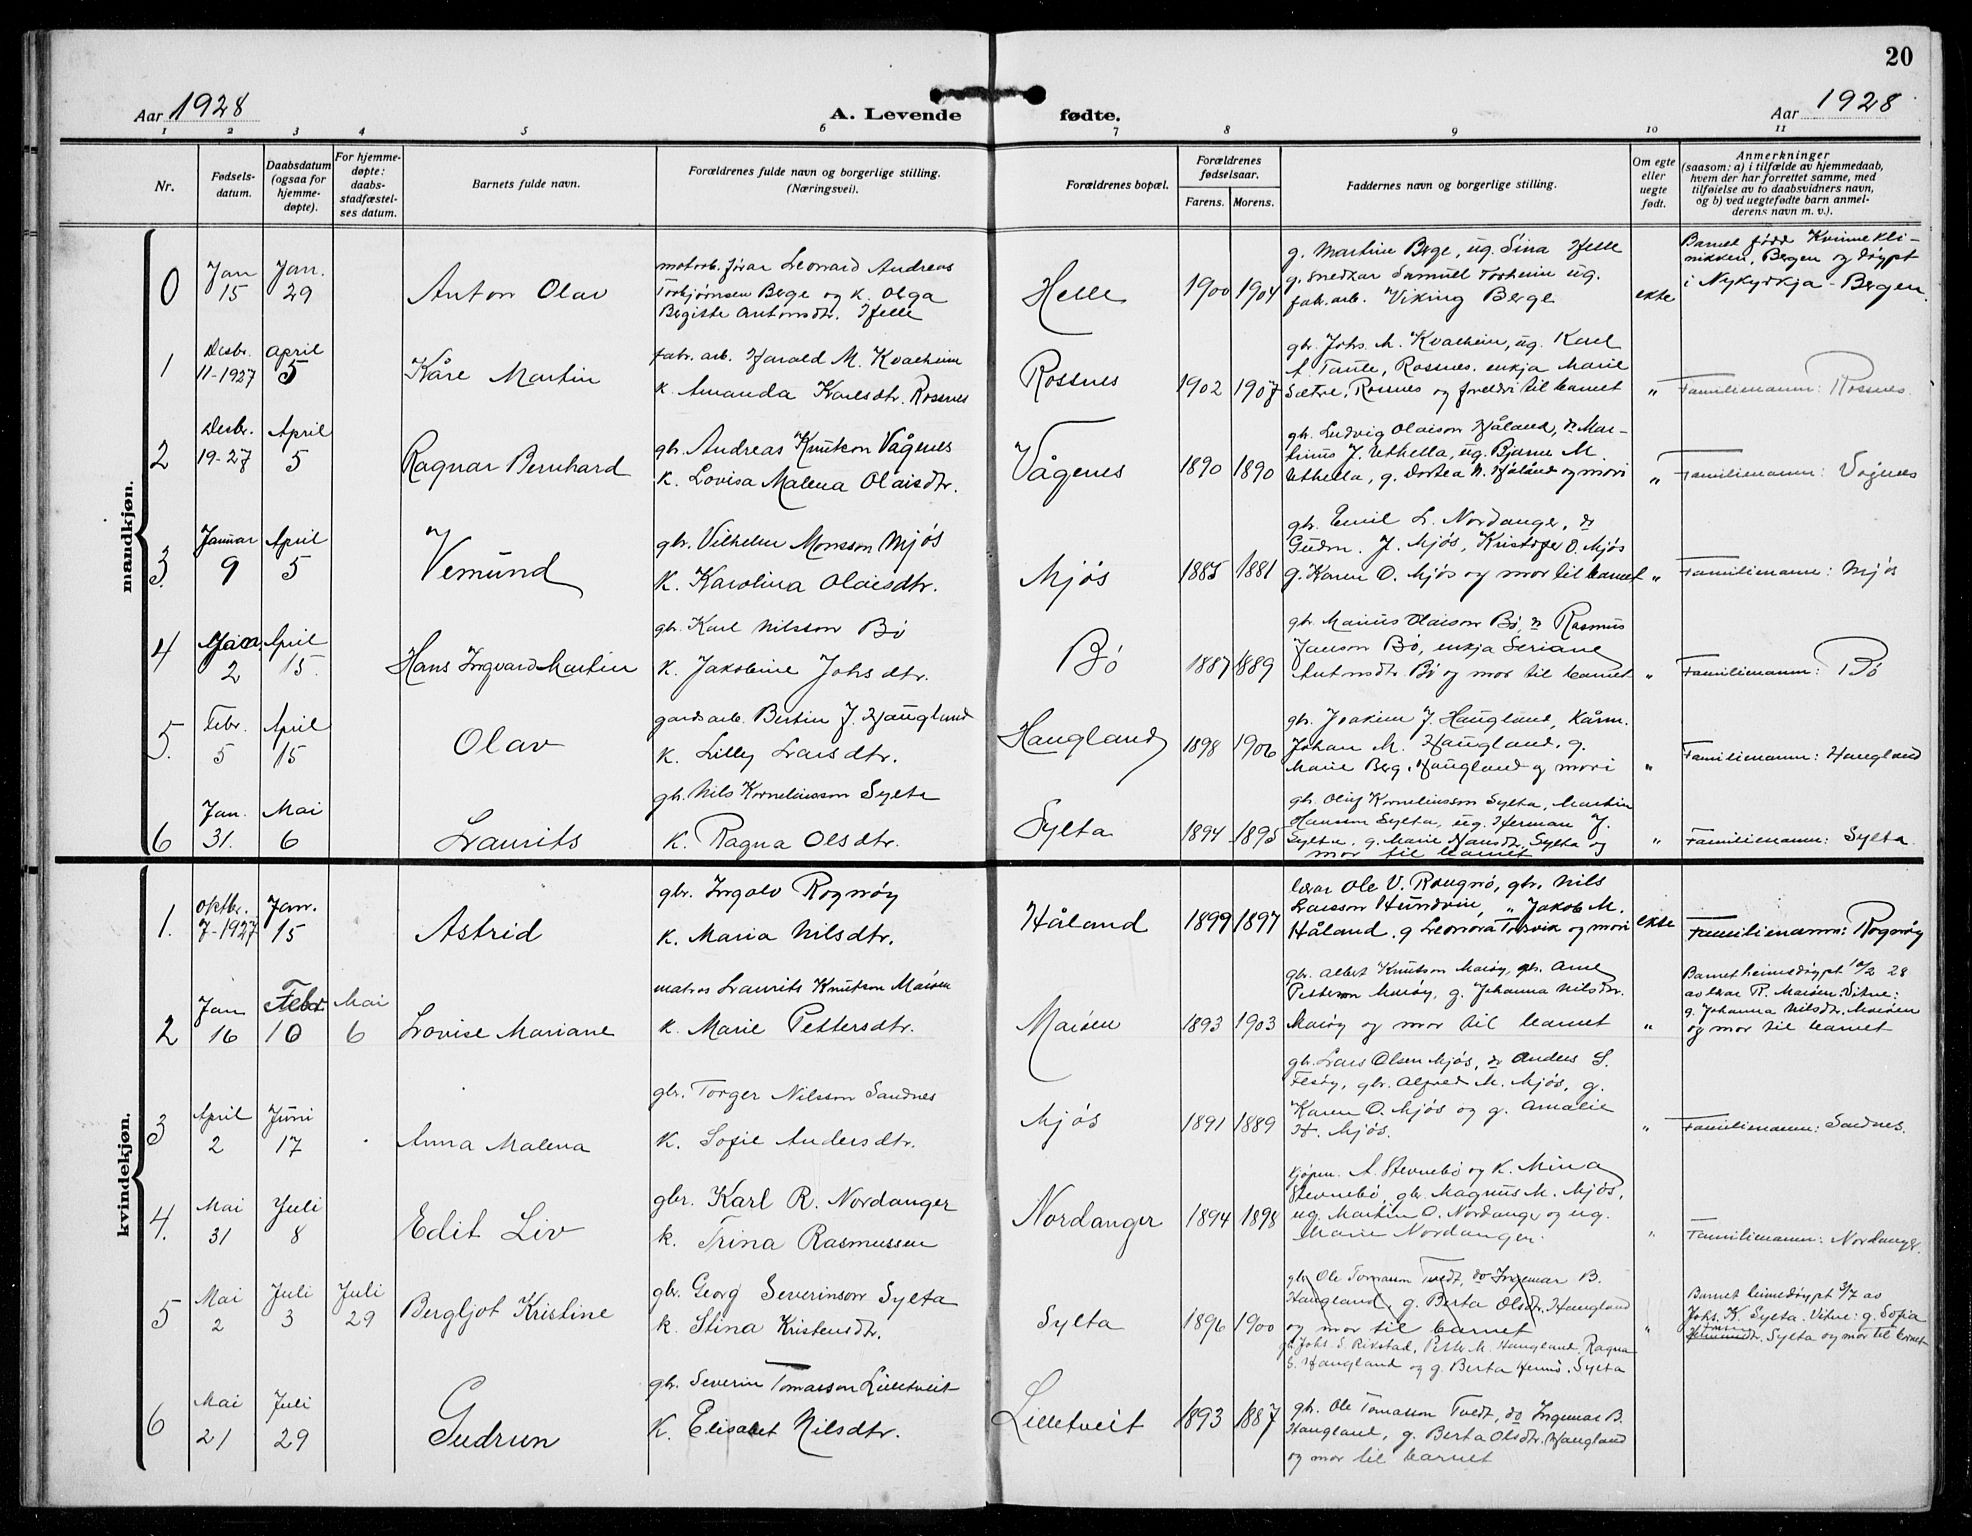 20
Aar 1928
A. Levende fødte.
Aar 1928
1 2 3 4 5 6 7 8 9 10 11
Nr.
Fødsels-
datum.
Daabsdatum
(ogsaa for
hjemme-
døpte).
For hjemme-
døpte:
daabs-
stadfæstel-
ses datum.
Barnets fulde navn.
Forældrenes fulde navn og borgerlige stilling.
(Næringsvei).
Forældrenes bopæl.
Forældrenes
fødselsaar.
Farens. Morens.
Faddernes navn og borgerlige stilling.
Om egte
eller
uegte
født.
Anmerkninger
(saasom: a) i tilfælde av hjemmedaab,
hvem der har forrettet samme, med
tilføielse av to daabsvidners navn,
og b) ved uegtefødte barn anmel-
derens navn m. v.).
mandkjøn.
0
Jan
15
Jan.
29
Anton Olav
motorb. førar Leonard Andreas
Torbjørnsen Berge og k. Olga
Bergitte Antonsdtr. Helle
Helle
1900 1904
g. Martin Berge, ug. Sina Helle
g. snedkar Samuel Torheim ug.
fabr. arb. Viking Berge
ekte
Barnet født Kvinnekli-
nikken, Bergen og døypt
i Nykyrkja - Bergen.
1
Desbr.
11-1927
April
5
Kåre Martin
fabr. arb. Harald M. Kvalheim
k. Amanda Karlsdtr. Rossnes
Rossnes
1902 1907
gbr. Johs. M. Kvalheim, ug. Karl
A. Taule, Rossnes, enkja Marie
Sætre, Rossnes og foreldri til barnet
"
Familienamn: Rossnes.
2
Desbr.
19-27
April
5
Ragnar Bernhard
gbr. Andreas Knutson Vågenes
k. Lovisa Malena Olaisdtr.
Vågenes
1890 1890
gbr. Ludvig Olaison Håland, do Mar-
tinus J. Uthella, ug. Bjarne M.
Uthella, g. Dortea N. Håland og mori
"
Familienamn: Vågnes
3.
Januar
9
April
5
Vemund
gbr. Vilhelm Monsson Mjøs
k. Karolina Olaisdtr.
Mjøs
1885 1881
gbr. Emil L. Nordanger, do
Gudm. J. Mjøs, Kristofer O. Mjøs
g. Karen O. Mjøs og mor til barnet
"
Familienamn: Mjøs
4
2
April
15.
Hans Ingvard Martin
gbr. Karl Nilsson Bø
k. Jakobine Johsdtr.
Bø
1887 1889
gbr. Marius Olaison Bø do Rasmus
Janson Bø, enkja Seriane
Antonsdtr. Bø og mor til barnet
"
Familienamn: Bø
5.
Febr.
5
April
15
Olav
gardsarb. Bertin J. Haugland
k. Lilly Larsdtr.
Haugland
1898 1906
gbr. Joakim J. Haugland, Kårm.
Johan M. Haugland, g.
Marie Berg. Haugland og mori
"
Familienamn: Haugland
6
Jan.
31.
Mai
6
Laurits
gbr. Nils Korneliusson Sylta
k. Ragna Olsdtr.
Sylta
1894 1895
gbr. Oluf Korneliusson Sylta, Martin
Hansson Sylta, ug. Herman J.
Sylta, g. Marie Hansdtr. Sylta og
mor til barnet
"
Familienamn: Sylta
kvindekjøn.
1.
Oktbr.
7-1927
Jan.
15
Astrid
gbr. Ingolv Rognøy
k. Maria Nilsdtr.
Håland
1899 1897
lærar Ole V. Rongnø, gbr. Nils
Larsson Hundvin, " Jakob M.
Håland, g Leonora Torsvik og mori
ekte
Familienamn: Rognøy
2
Jan
16
Febr
10
Mai
6
Lovise Mariane
matros Laurits Knutson Marøen
k. Marie Pettersdtr.
Marøen
1893 1903
gbr. Albert Knutson Marøy, gbr. Arne
Petterson Marøy, g. Johanna Nilsdtr.
Marøy og mor til barnet
"
Barnet heimedøypt 10/2 28
av lærar R. Marøen. Vitne:
g. Johanna Nilsdtr. Marøen
og mor til barnet
3
April
2
Juni
17
Anna Malena
gbr. Torger Nilsson Sandnes
k. Sofie Andersdtr.
Mjøs
1891 1889
gbr. Lars Olsen Mjøs, do Anders S.
Fesøy, gbr. Alfred M. Mjøs, g.
Karen O. Mjøs og g. Amalie
H. Mjøs.
"
Familienamn: Sandnes.
4.
Mai
31
Juli
8
Edit Liv
gbr. Karl R. Nordanger
k. Trina Rasmussen
Nordanger
1894 1898
kjøpm. A. Stevnebø og k. Mina
Stevnebø, gbr. Magnus M. Mjøs,
ug. Martin O. Nordanger og ug.
Marie Nordanger.
"
Familienamn: Nordanger.
5
Mai
2
Juli
3
Juli
29
Bergljot Kristine
gbr. Georg Severinson Sylta
k. Stina Kristensdtr.
Sylta
1896 1900
gbr Ole Tomasson Tvedt, do Ingemar B.
Haugland, g. Berta Olsdtr. Haugland
og mor til barnet
gbr. Johs S. Rikstad, Petter M. Haugland, Ragna
S. Haugland og g. Berta Sylta
"
Barnet heimedøypt 3/7 av
Johs. K. Sylta. Vitne: g. Sofia
Sylta og mor til barnet
6
Mai
21
Juli
29
Gudrun
gbr. Severin Tomasson Lilletveit
k. Elisabet Nilsdtr.
Lilletveit
1893 1887
gbr. Ole Tomasson Tvedt, do Ingemar B.
Haugland, g. Berta Olsdtr. Haugland
og mor til barnet